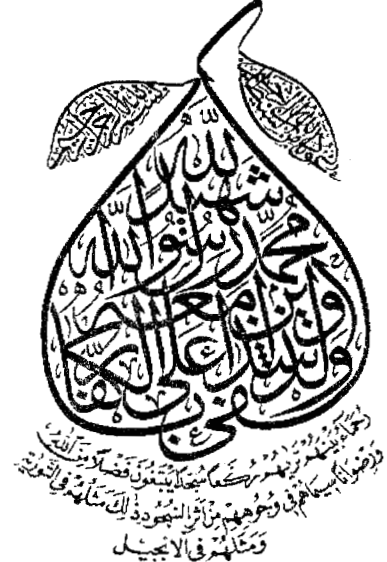 بسم الله الرحمن الرحيم
وكفى بالله شهيدا
محمد رسول الله
والذين معه
أشداء على الكفار
رحماء بينهم تراهم ركعا سجدا يبتغون فضلا من الله
ورضوانا سيماهم في وجوههم من أثر السجود ذلك مثلهم في التورية
ومثلهم في الانجيل